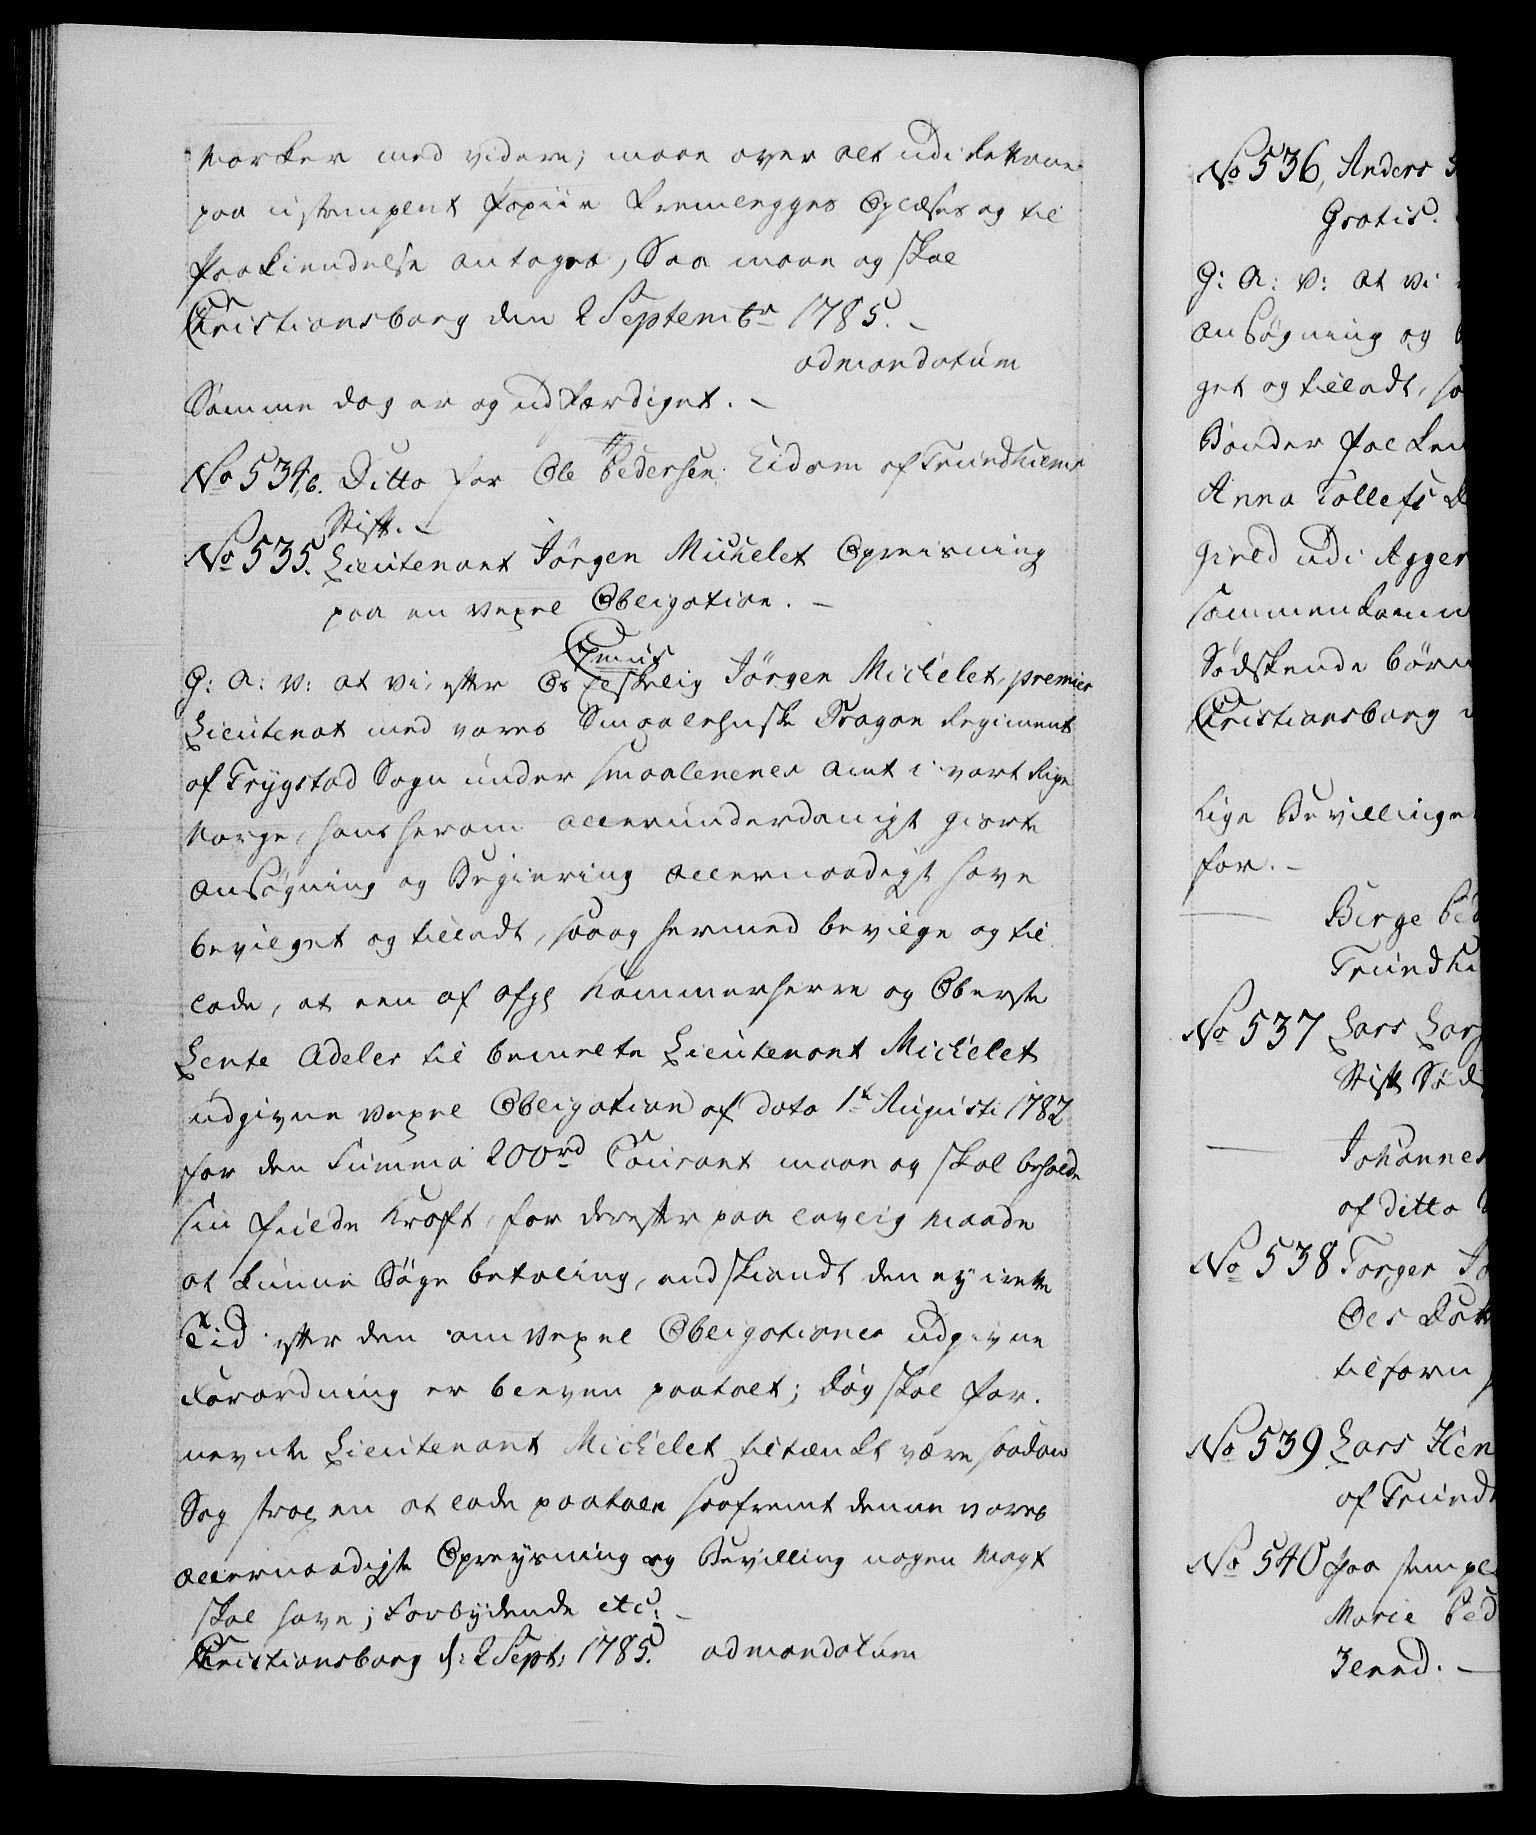 værker med videre; maae over alt udi Rettene
paa ustemplet Papiir fremlægges Oplæses og til
Paakiendelse antages, Saa maae og skal
Christiansborg den 2 Septembr 1785.
ad mandatum
Samme dag er og udfærdiget.
No 534,b. Ditto for Ole Pedersen Eidam af Trundhiems
Stift.
No 535. Lieutenant Jörgen Michelet Opreisning
paa en Vexel Obligation.
G: A: V: at vi, efter Os Elskelig Jörgen Michelet, premier
Lieutenat med vores Smaalehnske Dragon Regiment
af Trygstad Sogn under Smaalenenes Amt i vort Rige
Norge, hans herom allerunderdanigst giorte
ansøgning og Begiering allernaadigst have
bevilget og tilladt, saa og hermed bevilge og til
lade, at een af afg: Kammerherre og Oberste
Lente Adeler til bemelte Lieutenant Michelet
udgivne Vexel Obligation af dato 1t Augusti 1782
for den Summa 200rd Courant maae og skal beholde
sin fuilde Kraft, for derefter paa lovlig Maade
at kunne Søge betaling, endskiøndt den ey i rette
Tid efter den om Vexel Obligationer udgivne
Forordning er bleven paatalt; dog skal for-
nevnte Lieutenant Michelet tiltænkt være saadan
Sag strax en at lade paatale saafremt denne vores
allernaadigste Opreysning og Bevilling nogen Magt
skal have; Forbydende etc:
Christiansborg d: 2 Sept: 1785. ad mandatum
No 536, Anders
Gratis.
G: A: V: at vi
ansøgning og
get og tilladt, sa
Bonder folkene
Anna Tollefs D
gield udi Agger
sammenkomme
Sødskende børn
Christiansborg
Lige Bevillinge
for.
Birge Ped
Trundhi
No 537 Lars Lar
Stift Sø
Johannes
af ditto
No 538 Torger Jo
Ols Datt
tilforn
No 539 Lars Hen
af Trund
No 540 Paa stemple
Marie Ped
Jennd.